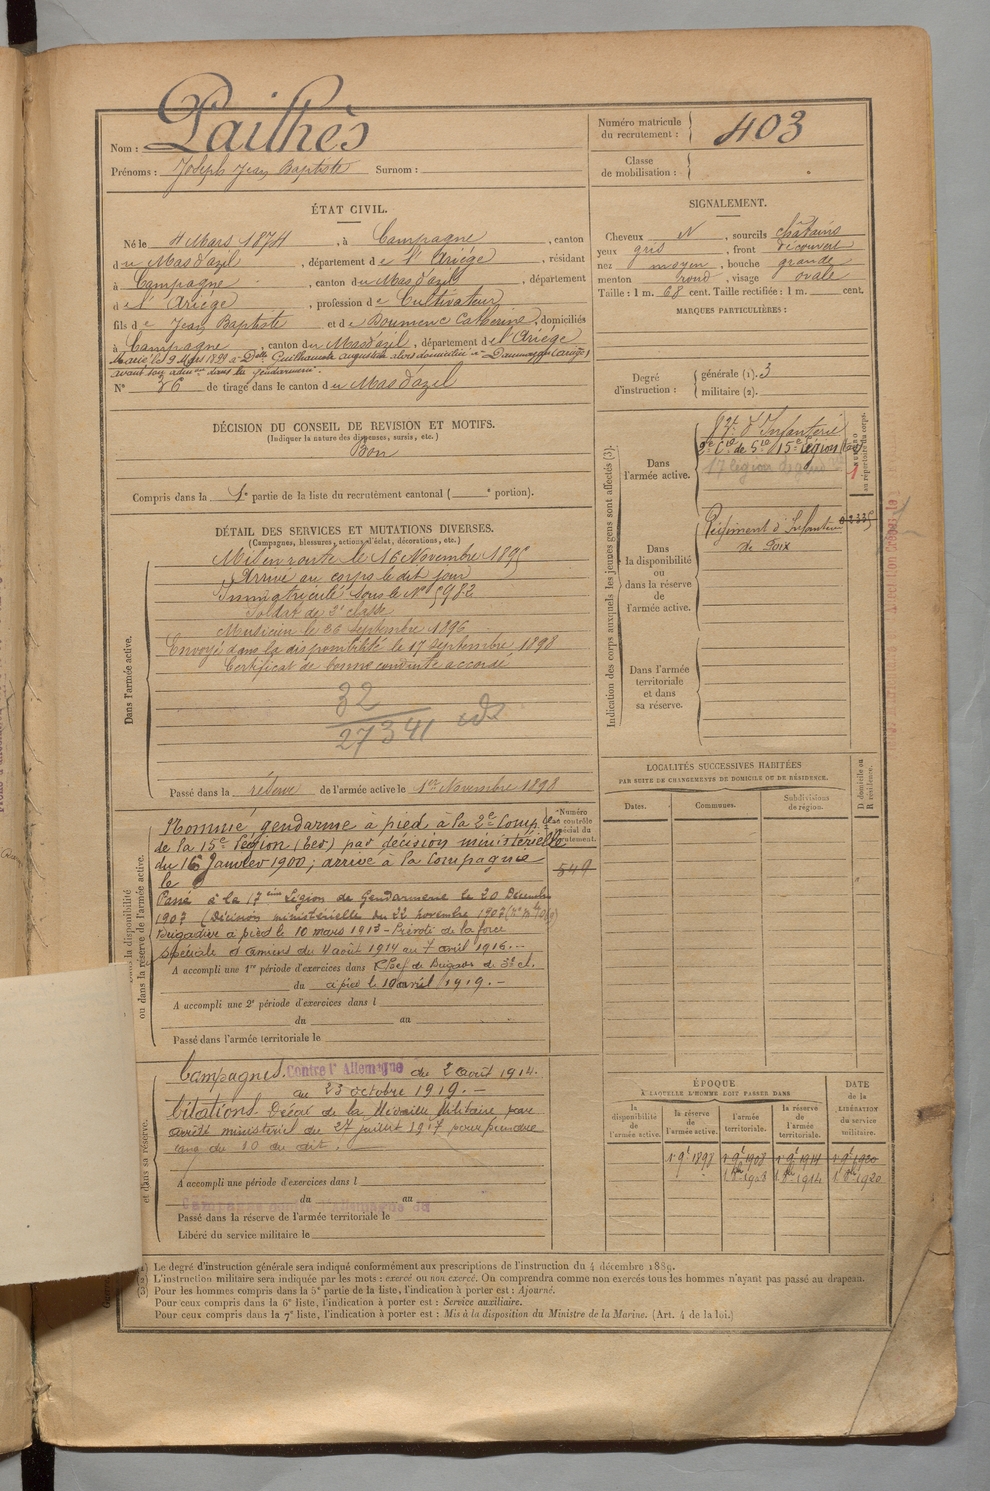 Nom : Pailhès
Prénoms : Joseph Jean Baptiste Surnom :
Numéro matricule du recrutement : 403
Classe de mobilisation :
ÉTAT CIVIL.
Né le 4 Mars 1874, à Campagne, canton
du Mas d'azil, département de l'Ariége, résidant
à Campagne, canton du Mas d'azil, département
de l'Ariége, profession de Cultivateur
fils de Jean Baptiste et de Doumenc Catherine, domiciliés
à Campagne, canton du Mas d'azil, département de l'Ariége
Marié le 9 Mars 1899 à Delle Guilhamède Augustine alors domiciliée à Daumazan (Ariége)
avant son admon dans la gendarmerie.
N° 36 de tirage dans le canton du Mas d'azil
SIGNALEMENT.
Cheveux N, sourcils châtains
yeux gris, front découvert
nez moyen, bouche grande
menton rond, visage ovale
Taille : 1 m. 68 cent. Taille rectifiée : 1 m. cent.
MARQUES PARTICULIÈRES :
Degré d'instruction : générale (1). 3
militaire (2).
DÉCISION DU CONSEIL DE REVISION ET MOTIFS.
(Indiquer la nature des dispenses, sursis, etc.)
Bon
Compris dans la 1e partie de la liste du recrutement cantonal ( e portion).
DÉTAIL DES SERVICES ET MUTATIONS DIVERSES.
(Campagnes, blessures, actions d'éclat, décorations, etc.)
Dans l'armée active.
Mis en route le 16 Novembre 1895
Arrivé au corps le dit jour
Immatriculé sous le N° 5982
Soldat de 2e classe
Musicien le 26 septembre 1896
Envoyé dans la disponibilité le 17 septembre 1898
Certificat de bonne conduite accordé
32
27341
Passé dans la réserve de l'armée active le 1er Novembre 1898
Numéro au contrôle spécial du recrutement.
549
ou dans la réserve de l'armée active.
Nommé gendarme à pied à la 2e Compie
de la 15e Légion (ter) par décision ministérielle
du 16 Janvier 1900; arrivé à la Compagnie
le
Passé à la 17ème Légion de Gendarmerie le 20 Décembre
1907 (Décision ministérielle du 22 novembre 1907
Brigadier à pied le 10 mars 1913 - Prévôté de la force
spéciale d'amiens du 4 août 1914 au 7 avril 1916.--
A accompli une 1re période d'exercices dans Chef de Brigade de 3e cl.
du à pied le 10 avril 1919.-
A accompli une 2e période d'exercices dans l
du au
Passé dans l'armée territoriale le
et dans sa réserve.
Campagnes. Contre l'Allemagne du 2 août 1914.
au 23 octobre 1919.-
Citations. Décoré de la Médaille Militaire par
arrêté ministériel du 27 juillet 1917 pour prendre
rang du 10 du dit.
A accompli une période d'exercices dans l
du au
Campagne contre l'Allemagne du
Passé dans la réserve de l'armée territoriale le
Libéré du service militaire le
Indication des corps auxquels les jeunes gens sont affectés (3).
Dans l'armée active.
NUMÉRO au répertoire du corps.
2e Cie de 15e Légion (ter)
17 légion
Dans la disponibilité ou dans la réserve de l'armée active.
Régiment d'Infanterie
de Foix
Dans l'armée territoriale et dans sa réserve.
LOCALITÉS SUCCESSIVES HABITÉES
PAR SUITE DE CHANGEMENTS DE DOMICILE OU DE RÉSIDENCE.
Dates. Communes. Subdivisions de région. D. domicile ou R. résidence.
ÉPOQUE
À LAQUELLE L'HOMME DOIT PASSER DANS
la disponibilité de l'armée active. la réserve de l'armée active. l'armée territoriale. la réserve de l'armée territoriale. DATE de la LIBÉRATION du service militaire.
1 9e 1898 1 9e 1908 1 9e 1914 1 9e 1920
(1) Le degré d'instruction générale sera indiqué conformément aux prescriptions de l'instruction du 4 décembre 1889.
(2) L'instruction militaire sera indiquée par les mots : exercé ou non exercé. On comprendra comme non exercés tous les hommes n'ayant pas passé au drapeau.
(3) Pour les hommes compris dans la 5e partie de la liste, l'indication à porter est : Ajourné.
Pour ceux compris dans la 6e liste, l'indication à porter est : Service auxiliaire.
Pour ceux compris dans la 7e liste, l'indication à porter est : Mis à la disposition du Ministre de la Marine. (Art. 4 de la loi.)